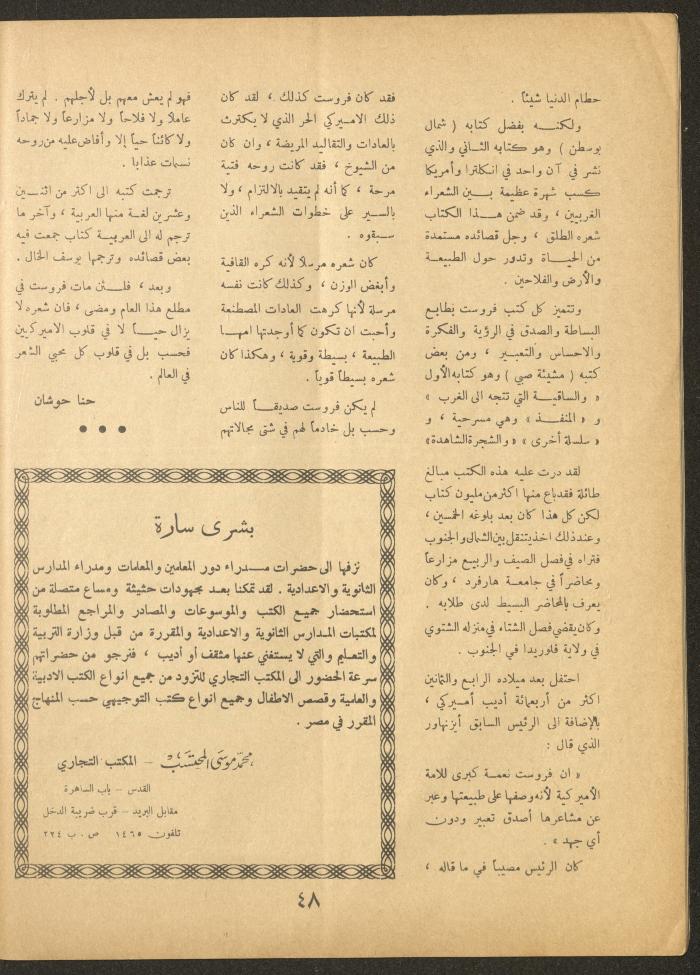 حطام الدنيا شيئاً .
ولكنـــه بفضل كتابه ( شمال
بوسطن ) وهو كتابه الثاني والذي
نشر في آن واحد في انكلترا وأمريكا
كسب شهرة عظيمة بـــين الشعراء
الغربيين ، وقد ضمن هـــذا الكتاب
شعره الطلق ، وجل قصائده مستمدة
من الحيـــاة وتدور حول الطبيعـــة
والأرض والفلاحين .
وتتميز كل كتب فروست بطابع
البساطة والصدق في الرؤية والفكرة
والاحساس والتعبـــير ، ومن بعض
كتبه ( مشيئة صبي ) وهو كتابه الأول
« والساقيـــة التي تتجه الى الغرب »
و « المنفـــذ » وهي مسرحية ، و
« سلسلة أخرى » « والشجرة الشاهدة»
لقد درت عليه هذه الكتب مبالغ
طائلة فقد باع منها اكثر من مليون كتاب
لكن كل هذا كان بعد بلوغه الخمسين ،
وعند ذلك اخذ يتنقل بين الشمال والجنوب
فتراه في فصل الصيف والربيع مزارعاً
ومحاضراً في جامعـــة هارفرد ، وكان
يعرف بالمحاضر البسيط لدى طلابه .
وكان يقضي فصل الشتاء في منزله الشتوي
في ولاية فلوريدا في الجنوب .
احتفل بعد ميلاده الرابع والثمانين
اكثر من أربعمائة أديب أمـــيركي ،
بالإضافة الى الرئيس السابق أيزنهاور
الذي قال :
« ان فروست نعمـــة كبرى للامة
الأميركية لأنه وصفها على طبيعتها وعبر
عن مشاعرها أصدق تعبير ودون
أي جهد » .
كان الرئيس مصيباً في ما قاله ،
فقد كان فروست كذلك ، لقد كان
ذلك الاميركي الحر الذي لا يكترث
بالعادات والتقاليد المريضة ، وان كان
من الشيوخ ، فقد كانت روحه فتية
مرحة ، كما أنه لم يتقيد بالالتزام ، ولا
بالسير على خطوات الشعراء الذين
سبقوه .
كان شعره مرسلاً لأنه كره القافية
وأبغض الوزن ، وكذلك كانت نفسه
مرسلة لأنها كرهت العادات المصطنعة
وأحبت ان تكون كما أوجدتها امهـــا
الطبيعة ، بسيطة وقوية ، وهكذا كان
شعره بسيطاً قوياً .
لم يكن فروست صديقـــاً للناس
وحسب بل خادماً لهم في شتى مجالاتهم
فهو لم يعش معهم بل لأجلهم . لم يترك
عاملاً ولا فلاحاً ولا مزارعاً ولا جماداً
ولا كائناً حياً إلا وأفاض عليه من روحه
نسمات عذابا .
ترجمت كتبه الى اكثر من اثنـــين
وعشرين لغـــة منها العربية ، وآخر ما
ترجم له الى العربيـــة كتاب جمعت فيه
بعض قصائده وترجمها يوسف الخال .
وبعد ، فلـــئن مات فروست في
مطلع هذا العام ومضى ، فان شعره لا
يزال حيـــاً لا في قلوب الاميركيين
فحسب بل في قلوب كل محبي الشعر
في العالم .
حنا حوشان
● ● ●
بشرى سارة
نزفها الى حضرات مـــدراء دور المعلمين والمعلمات ومدراء المدارس
الثانوية والاعدادية . لقد تمكنا بعـــد مجهودات حثيثة ومساع متصلة من
استحضار جميـــع الكتب والموسوعات والمصادر والمراجع المطلوبة
لمكتبات المـــدارس الثانوية والاعدادية والمقررة من قبل وزارة التربية
والتعليم والتي لا يستغني عنها مثقف أو أديب ، فنرجو من حضراتهم
سرعة الحضور الى المكتب التجاري للتزود من جميع انواع الكتب الادبية
والعلمية وقصص الاطفال وجميع انواع كتب التوجيهي حسب المنهاج
المقرر في مصر .
محمد موسى المحتسب – المكتب التجاري
القدس – باب الساهرة
مقابل البريد – قرب ضريبة الدخل
تلفون ١٤٦٥ ص . ب ٢٢٤
٤٨